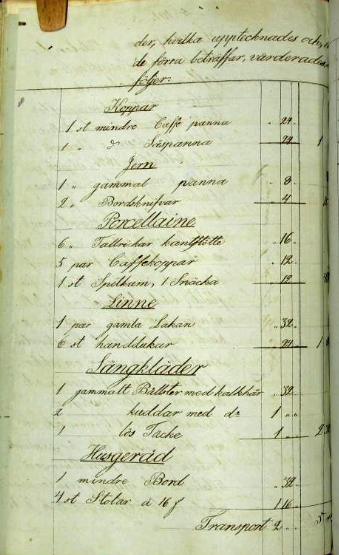 der, hvilka upptecknades och,
de förra beträffar, värderades
följer:
Koppar
1 st mindre Caffe panna " 24
1 " d:o Såspanna " 24 1
Jern
1 " gammal panna " 8
2 " Bordsknifvar " 4
Porcellaine
6 " Tallrikar kantstötte " 16
5 par Caffekoppar " 12
1 st Spilkum, 1 Snäcka " 12
Linne
1 par gamla Lakan " 32
6 st handdukar " 24 1
Sängkläder
1 gammalt Bolster med kalfhår " 32
2 kuddar med d:o 1 " "
1 lös Täcke 1 " "
Husgeråd
1 mindre Bord " 32
4 st Stolar à 16 f 1 16
Transport 2 " "